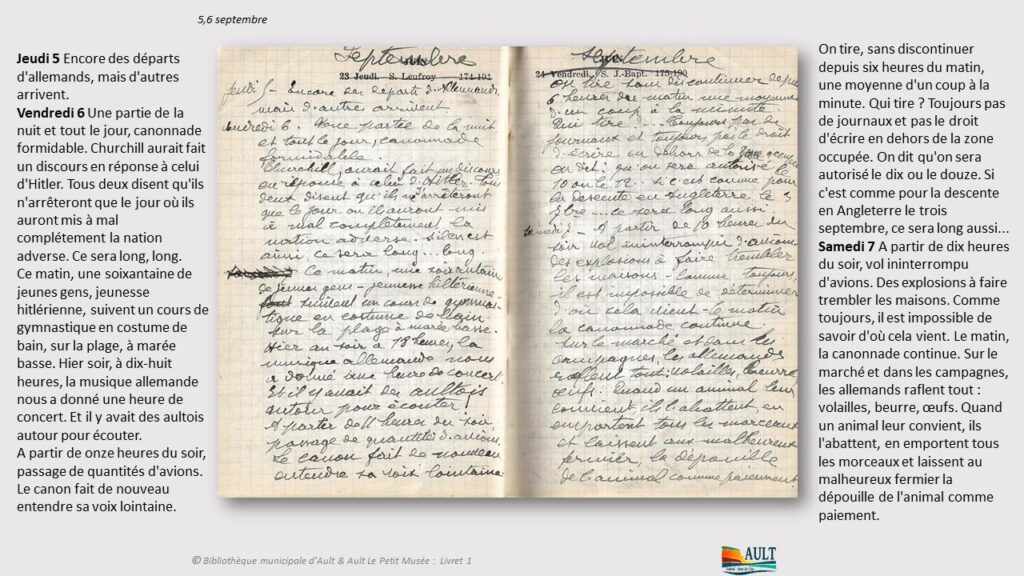 5,6 septembre
Jeudi 5 Encore des départs
d'allemands, mais d'autres
arrivent.
Vendredi 6 Une partie de la
nuit et tout le jour, canonnade
formidable. Churchill aurait fait
un discours en réponse à celui
d'Hitler. Tous deux disent qu'ils
n'arrêteront que le jour où ils
auront mis à mal
complétement la nation
adverse. Ce sera long, long.
Ce matin, une soixantaine de
jeunes gens, jeunesse
hitlérienne, suivent un cours de
gymnastique en costume de
bain, sur la plage, à marée
basse. Hier soir, à dix-huit
heures, la musique allemande
nous a donné une heure de
concert. Et il y avait des aultois
autour pour écouter.
A partir de onze heures du soir,
passage de quantités d'avions.
Le canon fait de nouveau
entendre sa voix lointaine.
Septembre
23 Jeudi. S. Leufroy 174-191
Jeudi 5 - Encore des départs d'Allemands
mais d'autres arrivent
Vendredi 6. Une partie de la nuit
et tout le jour, canonnade
formidable.
Churchill aurait fait un discours
en réponse à celui d'Hitler. Tous
deux disent qu'ils n'arrêteront
que le jour où ils auront mis
à mal complètement la
nation adverse. S'il en est
ainsi, ce sera long... long..
Ce matin, une soixantaine
de jeunes gens - jeunesse hitlérienne
suivent un cours de gymnas-
tique en costume de bain
sur la plage à marée basse.
Hier au soir à 18 heures, la
musique allemande nous
a donné une heure de concert.
Et il y avait des aultois
autour pour écouter.
A partir de 11 heures du soir
passage de quantité d'avions.
Le canon fait de nouveau
entendre sa voix lointaine
Septembre
24 Vendredi. S. J.-Bapt. 175-190
On tire sans discontinuer depuis
6 heures du matin une moyenne
d'un coup à la minute.
Qui tire ? Toujours pas de
journaux et toujours pas le droit
d'écrire en dehors de la zone occupée
On dit qu'on sera autorisé le
10 ou le 12.. Si c'est comme pour
la descente en Angleterre le 3
7bre... ce sera long aussi.
Samedi 7 - A partir de 10 heures du
soir vol ininterrompu d'avions
des explosions à faire trembler
les maisons - Comme toujours,
il est impossible de déterminer
d'où cela vient - le matin
la canonnade continue.
Sur le marché et dans les
campagnes, les allemands
raflent tout: volailles, beurre
œufs. Quand un animal leur
convient, ils l'abattent, en
emportent tous les morceaux
et laissent aux malheureux
fermier, la dépouille
de l'animal comme paiement
On tire, sans discontinuer
depuis six heures du matin,
une moyenne d'un coup à la
minute. Qui tire ? Toujours pas
de journaux et pas le droit
d'écrire en dehors de la zone
occupée. On dit qu'on sera
autorisé le dix ou le douze. Si
c'est comme pour la descente
en Angleterre le trois
septembre, ce sera long aussi...
Samedi 7 A partir de dix heures
du soir, vol ininterrompu
d'avions. Des explosions à faire
trembler les maisons. Comme
toujours, il est impossible de
savoir d'où cela vient. Le matin,
la canonnade continue. Sur le
marché et dans les campagnes,
les allemands raflent tout :
volailles, beurre, œufs. Quand
un animal leur convient, ils
l'abattent, en emportent tous
les morceaux et laissent au
malheureux fermier la
dépouille de l'animal comme
paiement.
© Bibliothèque municipale d'Ault & Ault Le Petit Musée : Livret 1
AULT